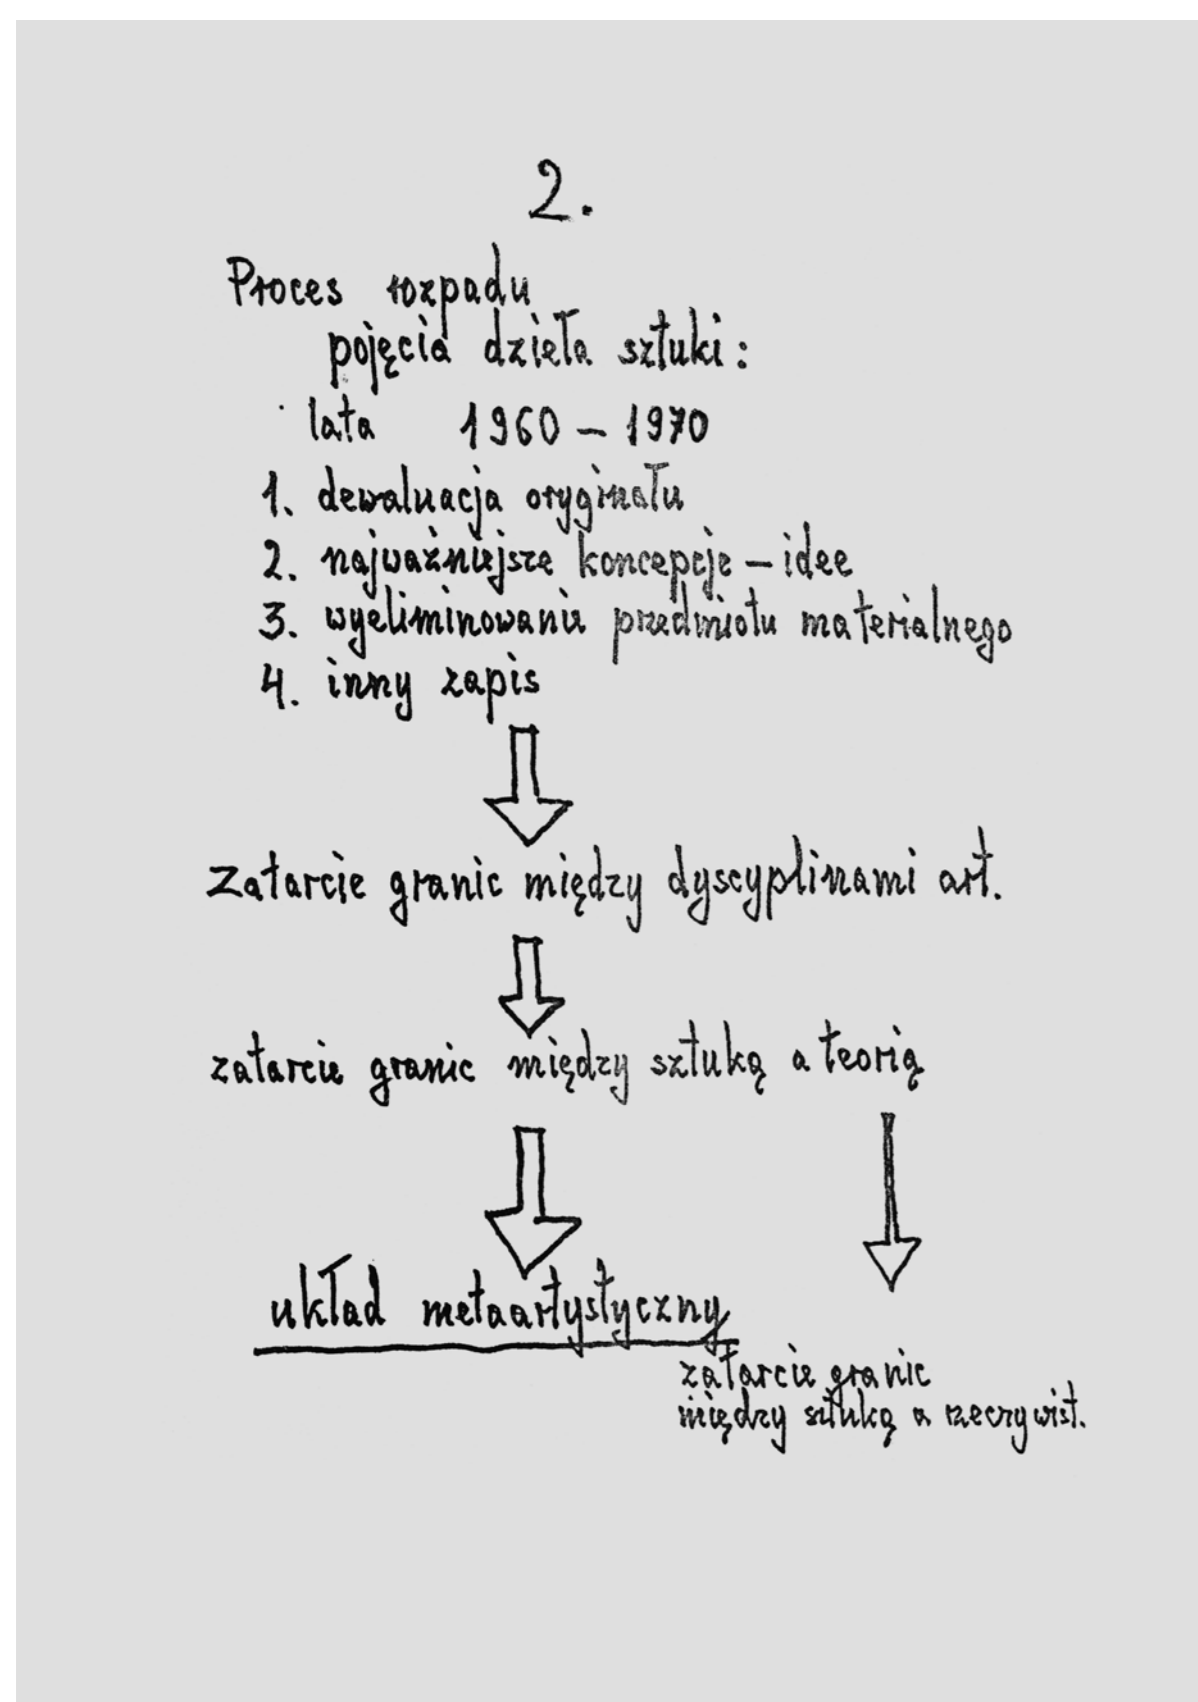 2.
Proces rozpadu
pojęcia dzieła sztuki:
lata 1960 – 1970
1. dewaluacja oryginału
2. najważniejsze koncepcje – idee
3. wyeliminowanie przedmiotu materialnego
4. inny zapis
Zatarcie granic między dyscyplinami art.
zatarcie granic między sztuką a teorią
układ metaartystyczny
zatarcie granic
między sztuką a rzeczywist.